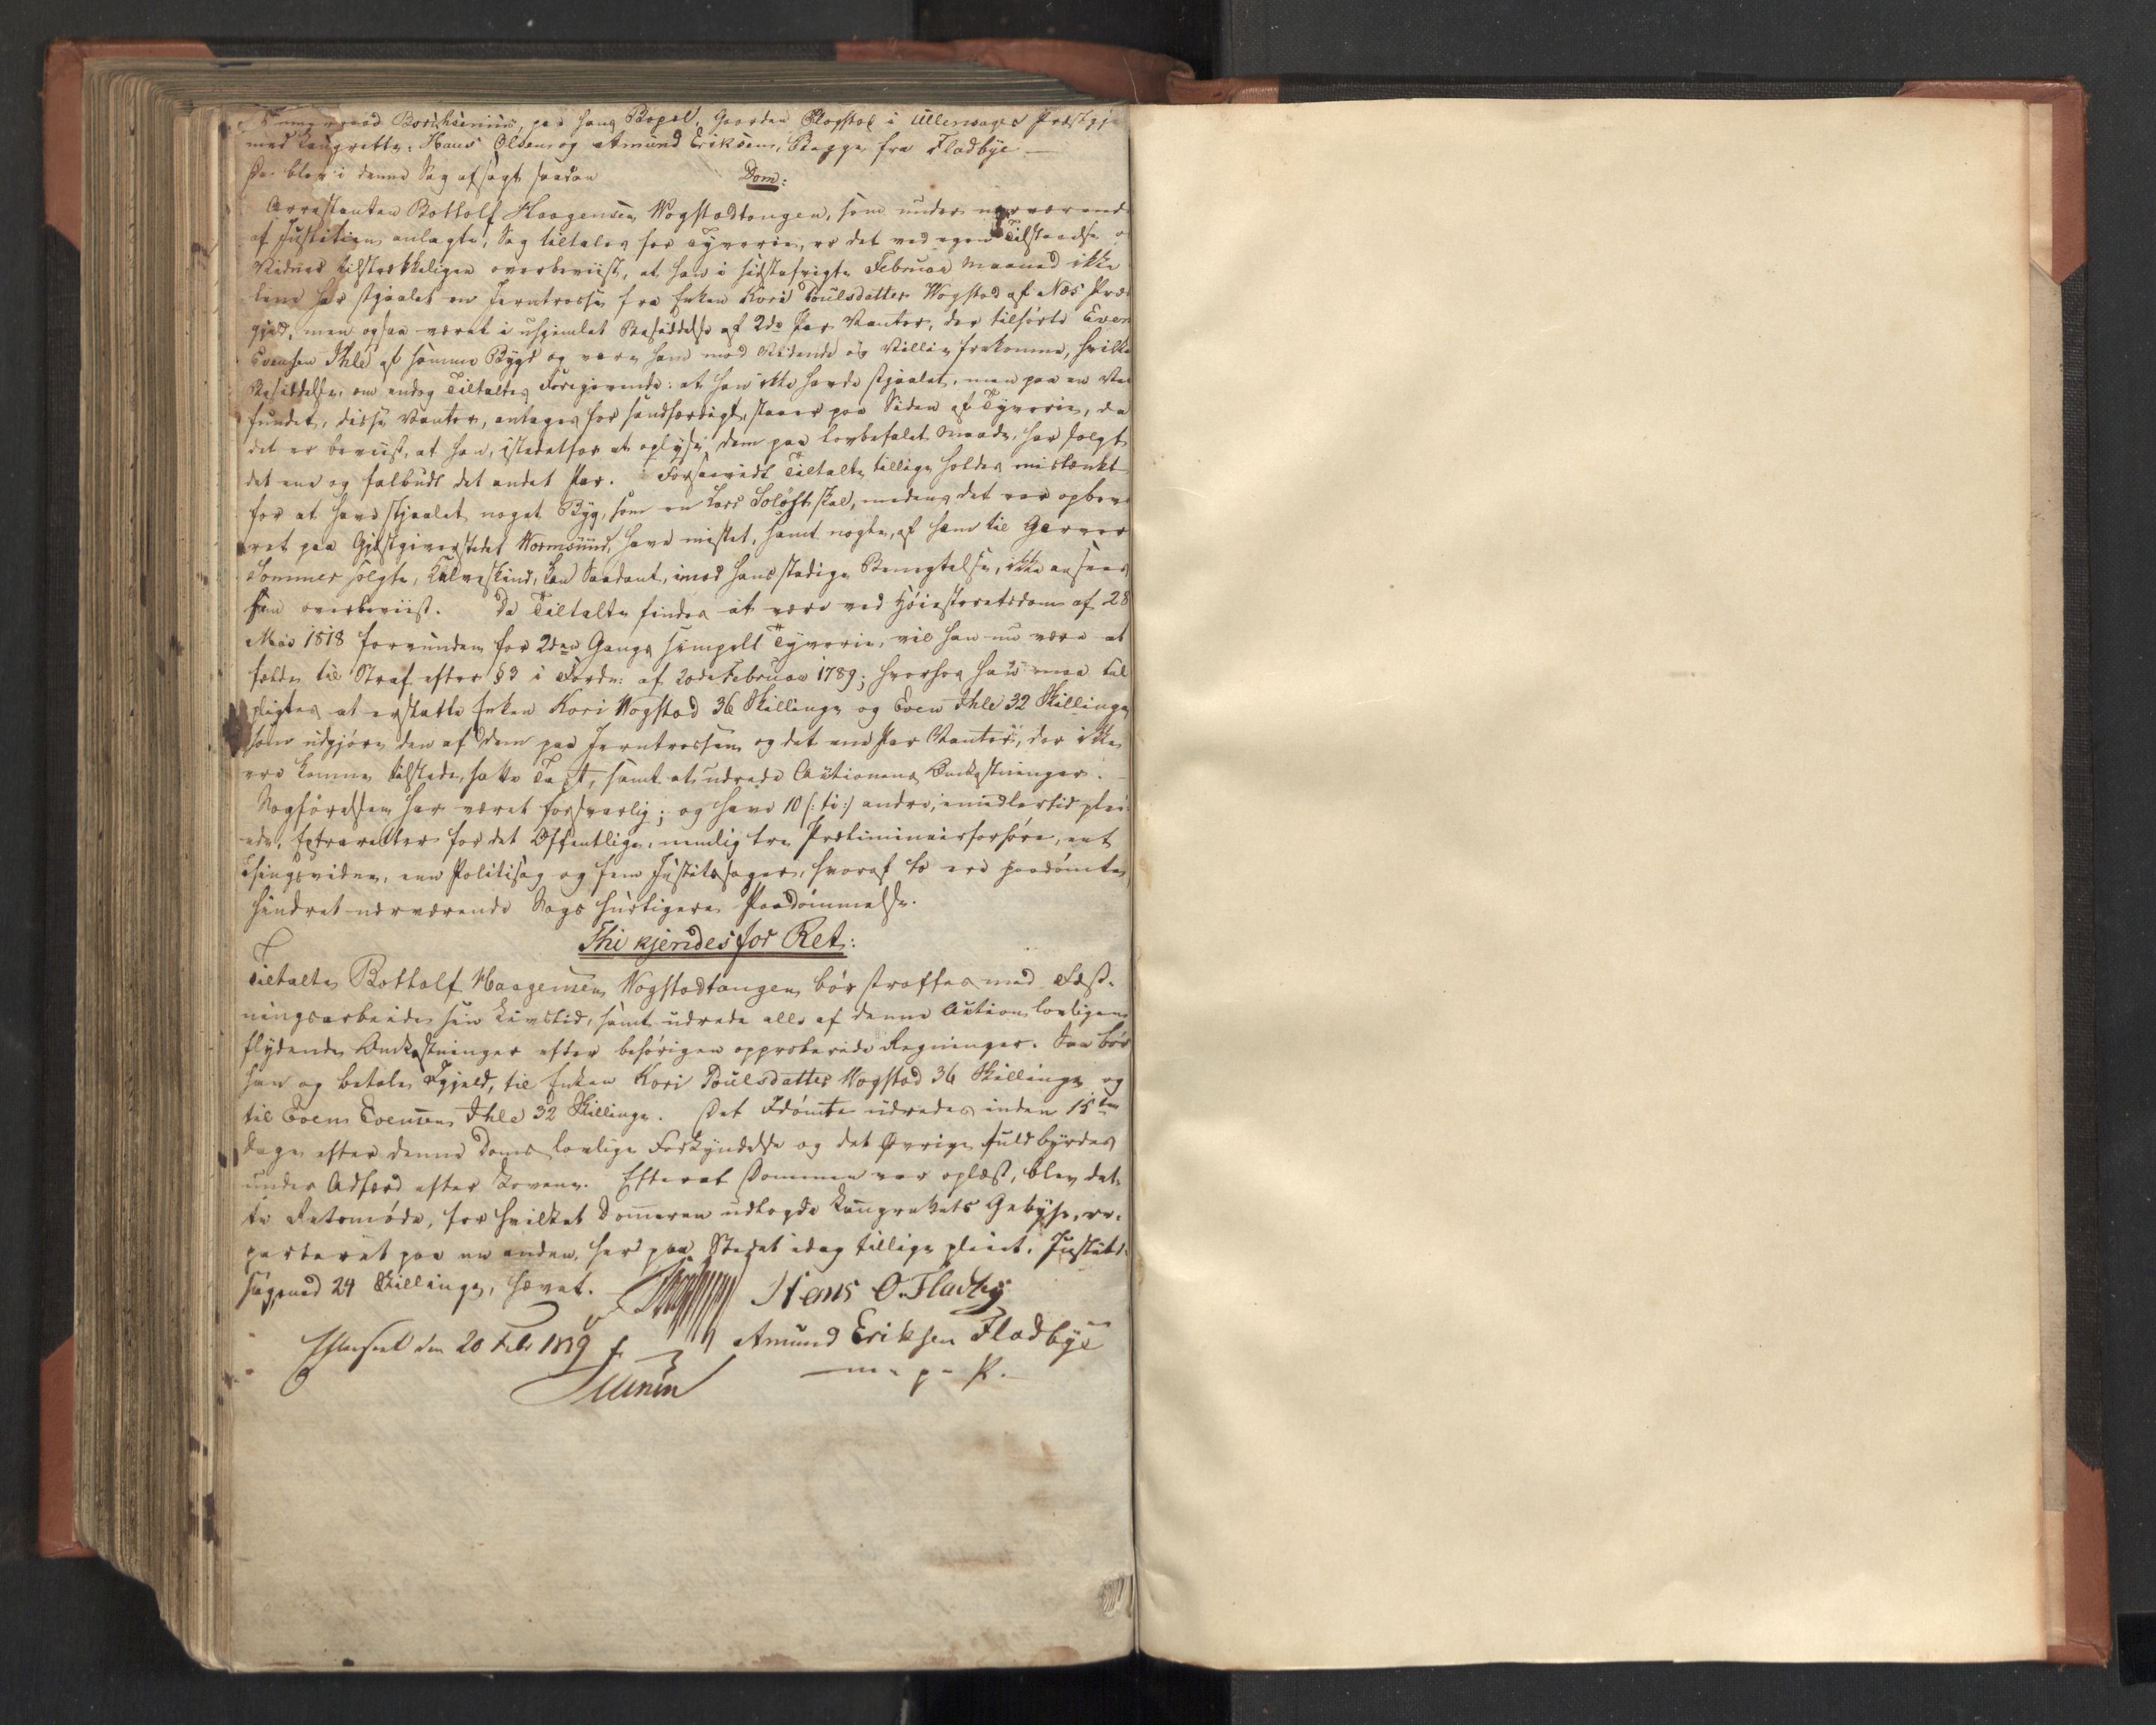 Borchsenius, paa hans Bopel, Gaarden Klogstad i Ullensagers Præstgj
med Laugretts: Hans Olsen og Amund Eriksen, Begge fra Fladbye —
Da blev i denne Sag afsagt saadan Dom:
Arrestanten Bottolf Haagensen Wogstadtangen, som under nærværende
af Justitien anlagte Sag tiltales for Tyverie, er det ved egen Tilstaaelse o
Vidner tilstrækkeligen overbeviist, at han i sidstafvigte Februar Maaned ikke
lene har stjaalet en Jerntrosse fra Enken Kari Poulsdatter Wogstad af Næs Præs
gjeld, men ogsaa været i uhjemlet Besiddelse af 2de Par Vanter, der tilhørte Even
Evensen Ihle af samme Bygd og vare ham mod Vidende og Villie frakomne, hvilke
Besiddelse, om endog Tiltaltes Foregivende: at han ikke havde stjaalet, men paa en Vei
fundet, disse Vanter, antages for sandfærdigt, staaer paa Siden af Tyverie, da
det er beviist, at han, istedetfor at oplyse dem paa lovbefalet Maade, har solgt
det ene og falbudt det andet Par. Forsaavidt Tiltalte tillige holdes mistænkt
for at have stjaalet noget Byg, som en Lars Soløst skal, medens det var opbeva
ret paa Gjæstgiverstedet Wormsund, have mistet, samt nogle, af ham til Garver
Sommer solgte, Kalveskind, kan Saadant, imod hans stadige Benegtelse, ikke ansees
som overbeviist. Da Tiltalte findes at være ved Høiesteretsdom af 28
Mai 1818 forvunden for 2den Gangs simpelt Tyverie, vil han nu være at
fælde til Straf efter § 3 i Fordn: af 20de Februar 1789; hvorhos han maa til
pligtes at erstatte Enken Kari Wogstad 36 Skillinge og Even Ihle 32 Skillinge
som udgjøre den af dem paa Jerntrossen og det ene Par Vanter, der ikke
ere komne tilstede, satte Taxt, samt at udrede Actionens Omkostninger.
Sagførelsen har været forsvarlig; og have 10 /: ti :/ andre, imidlertid plei-
ede, Extraretter for det Offentlige, nemlig tre Præliminairforhøre, eet
Thingsvidne, een Politisag og fem Justitssager, hvoraf to ere paadømte,
hindret nærværende Sags hurtigere Paadømmelse.
Thi kjendes for Ret:
Tiltalte Bottolf Haagensen Wogstadtangen bør straffes med Fæst-
ningsarbeide sin Livstid, samt udrede alle af denne Action lovligen
flydende Omkostninger efter behørigen approberede Regninger. Saa bør
han og betale Igjeld, til Enken Kari Poulsdatter Wogstad 36 Skillinge og
til Even Evensen Ihle 32 Skillinge. Det Idømte udredes inden 15ten
Dage efter denne Doms lovlige Forkyndelse og det Øvrige fuldbyrdes
under Adfærd efter Loven. Efterat Dommen var oplæst, blev det-
te Retsmøde, for hvilket Dommeren udlagde Laugrettets Gebyhr, re-
parteret paa en anden, her paa Stedet idag tillige pleiet, Justits-
sag, med 24 Skillinge, hævet.
Hans O. Fladbÿ
den 20 Febr 1819
Amund Eriksen Fladbÿe
m. p. P.